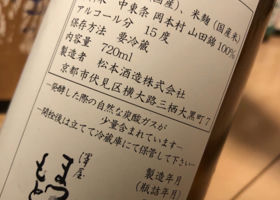 国産)、米麹(国産米)
中東条 岡本村 山田錦100%
アルコール分 15度
保存方法 要冷蔵
内容量 720ml
製造者 松本酒造株式会社
京都市伏見区横大路三栖大黒町7
―発酵した際の自然な炭酸ガスが
少量含まれています―
―開栓後は立てて冷蔵庫にて保管して下さい―
澤屋
まつもと
製造年月
(瓶詰年月)